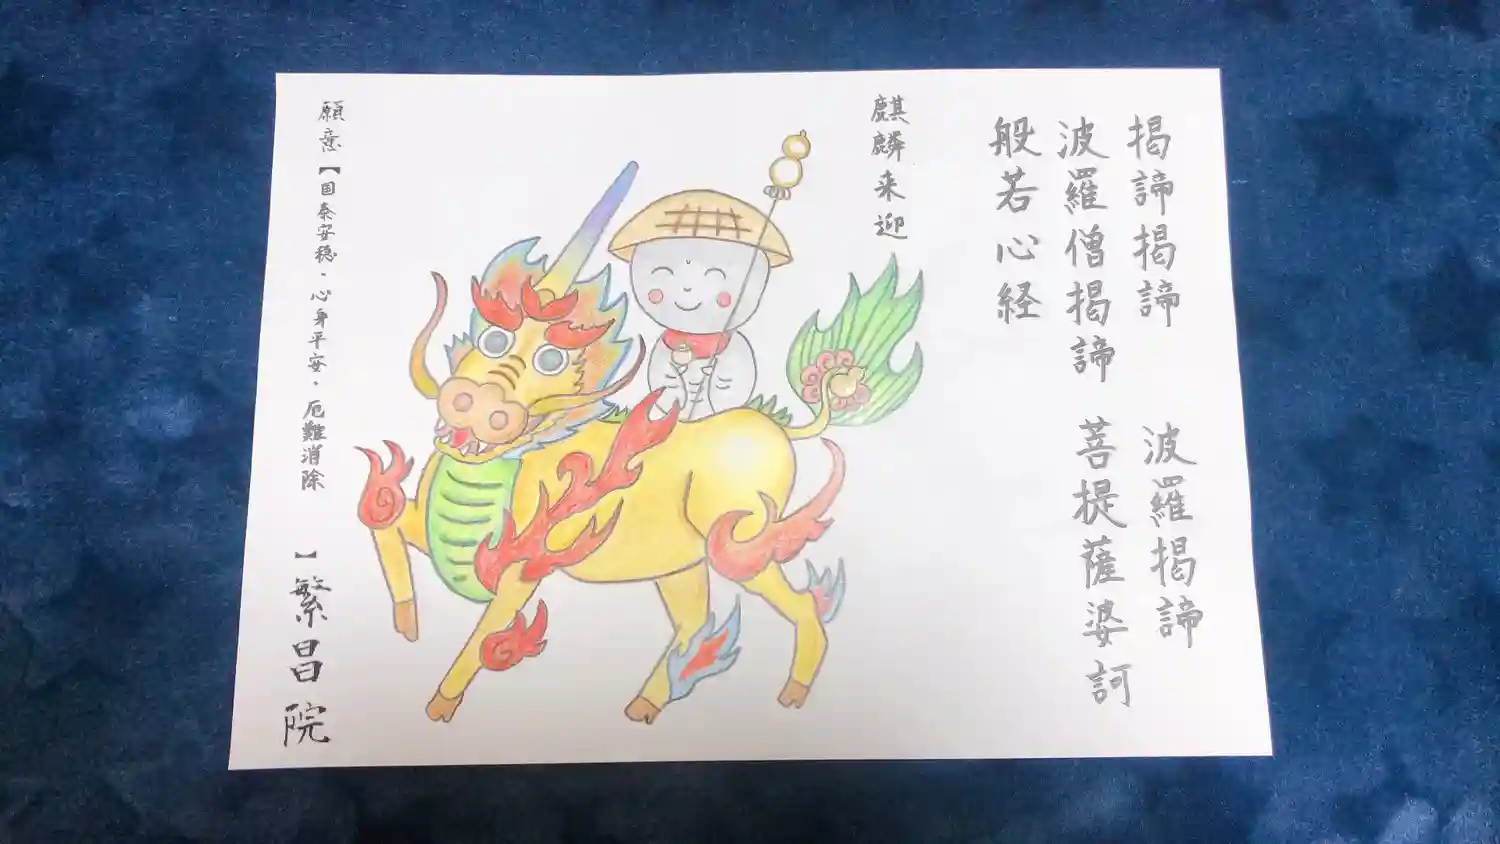 揭諦揭諦　波羅揭諦
波羅僧揭諦　菩提薩婆訶
般若心経
麒麟来迎
願意【国泰安穏・心身平安・厄難消除　】繁昌院